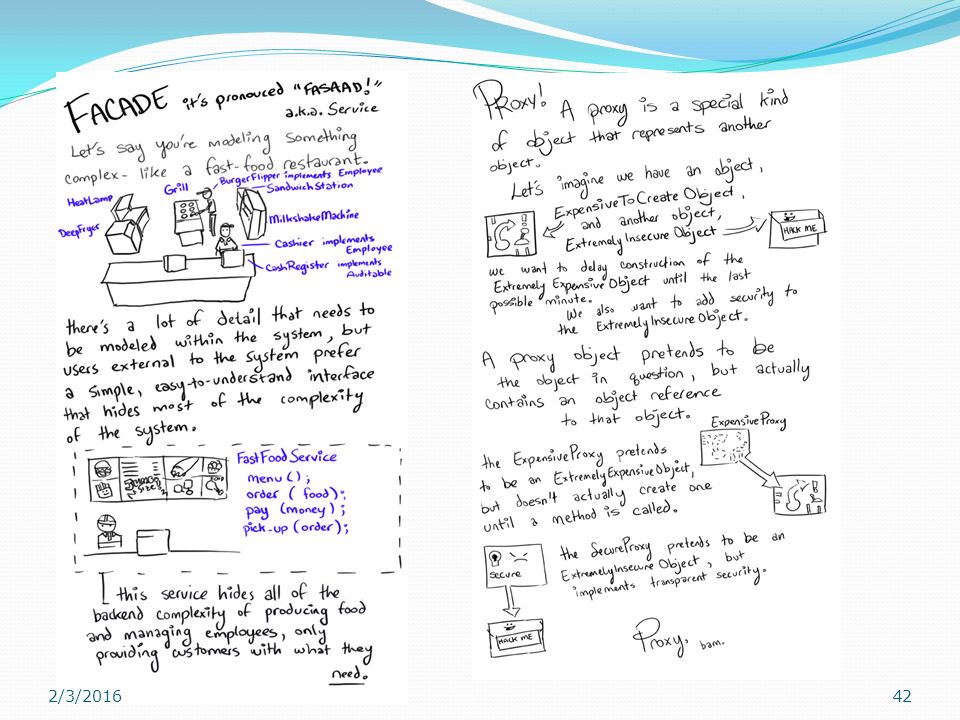 FACADE it's pronouced "FASAAD!"
a.k.a. Service
Let's say you're modeling something
complex - like a fast-food restaurant.
HeatLamp
Grill
BurgerFlipper implements Employee
SandwichStation
DeepFryer
MilkshakeMachine
Cashier implements
Employee
CashRegister implements
Auditable
there's a lot of detail that needs to
be modeled within the system, but
users external to the system prefer
a simple, easy-to-understand interface
that hides most of the complexity
of the system.
FastFoodService
menu();
order (food);
pay (money);
pick-up (order);
this service hides all of the
backend complexity of producing food
and managing employees, only
providing customers with what they
need.
PROXY! A proxy is a special kind
of object that represents another
object.
Let's imagine we have an object,
ExpensiveToCreate Object,
and another object,
Extremely Insecure Object
HACK ME
we want to delay construction of the
Extremely Expensive Object until the last
possible minute.
We also want to add security to
the ExtremelyInsecure Object.
A proxy object pretends to be
the object in question, but actually
contains an object reference
to that object.
ExpensiveProxy
the ExpensiveProxy pretends
to be an ExtremelyExpensiveObject,
but doesn't actually create one
until a method is called.
secure
the SecureProxy pretends to be an
ExtremelyInsecure Object, but
implements transparent security.
HACK ME
Proxy. bam.
2/3/2016
42